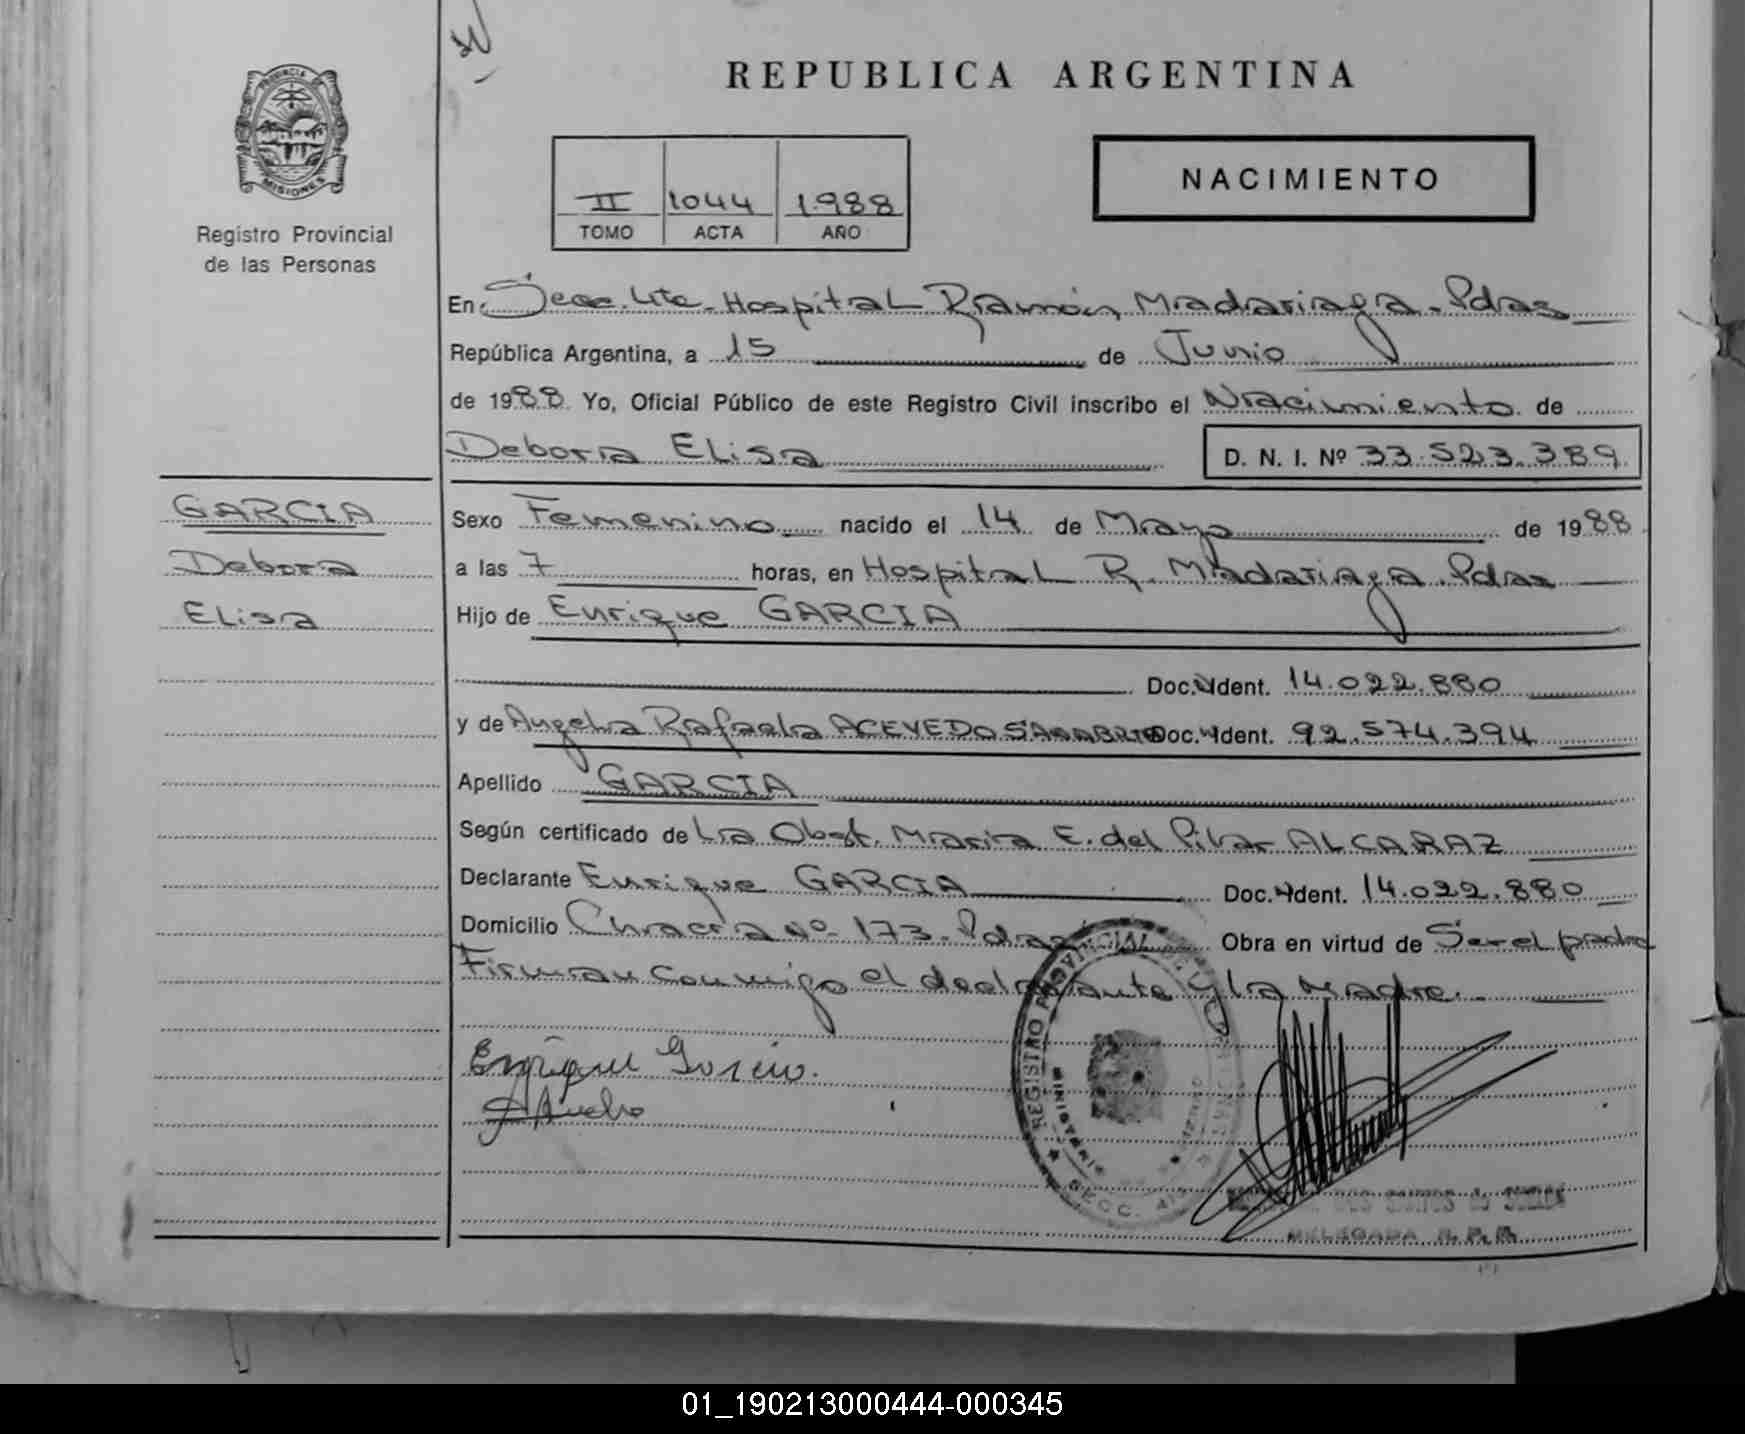 REPUBLICA ARGENTINA
PROVINCIA
MISIONES
Registro Provincial
de las Personas
II 1044 1988
TOMO ACTA AÑO
NACIMIENTO
En Secc. 4ta- Hospital Ramón Madariaga. Pdas
República Argentina, a 15 de Junio
de 1988 Yo, Oficial Público de este Registro Civil inscribo el Nacimiento de
Debora Elisa D. N. I. Nº 33.523.389
GARCIA
Debora
Elisa
Sexo Femenino nacido el 14 de Mayo de 1988
a las 7 horas, en Hospital R. Madariaga. Pdas
Hijo de Enrique GARCIA
Doc. Ident. 14.022.880
y de Angela Rafaela ACEVEDO Doc. Ident. 92.574.394
Apellido GARCIA
Según certificado de La Obst. Maria E. del Pilar ALCARAZ
Declarante Enrique GARCIA Doc. Ident. 14.022.880
Domicilio Chacra nº 173. Pdas Obra en virtud de Ser el padre
Firman conmigo el declarante y la Madre.
Enrique Garcia.
REGISTRO PROVINCIAL DE LAS
MINISTERIO
SECC. 4
DELEGADA R. P. P.
01_190213000444-000345